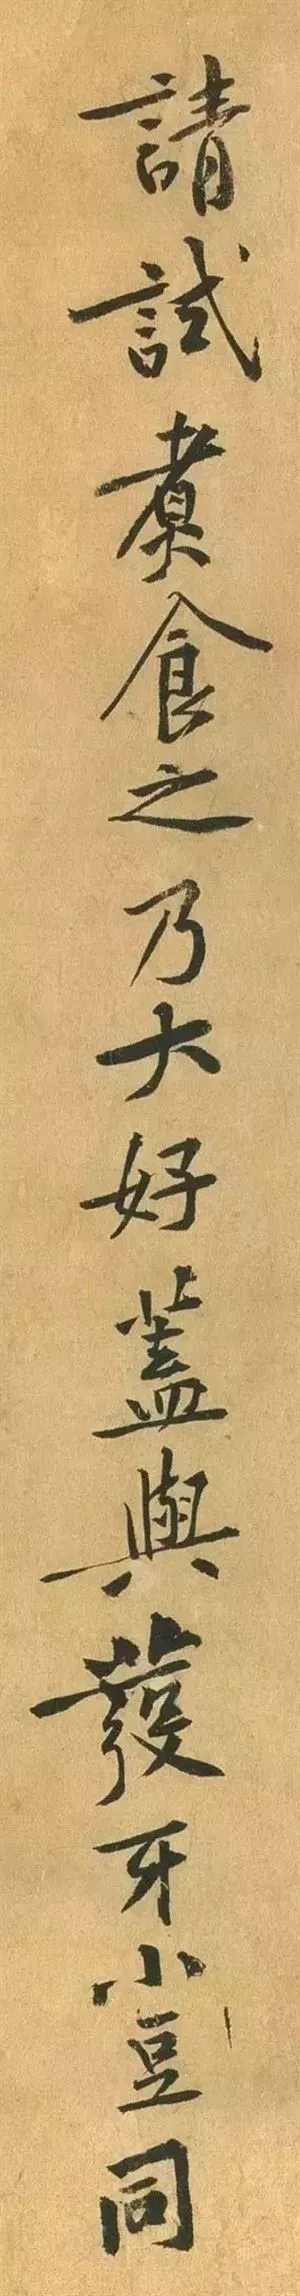 請試煮食之乃大好蓋與發牙小豆同